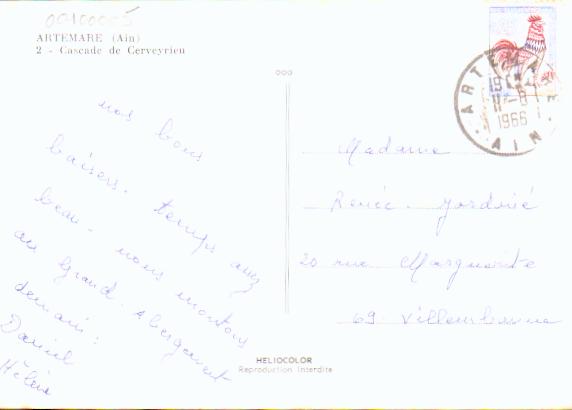 00100005
ARTEMARE (Ain)
2 - Cascade de Cerveyrieu
nos bons
baisers. temps assez
beau. nous montons
au grand. Abergement
demain:
Daniel
Hélène
ARTEMARE
11-8
1966
AIN
Madame
Renée
20 rue Marguerite
69. Villeurbanne
HELIOCOLOR
Reproduction Interdite